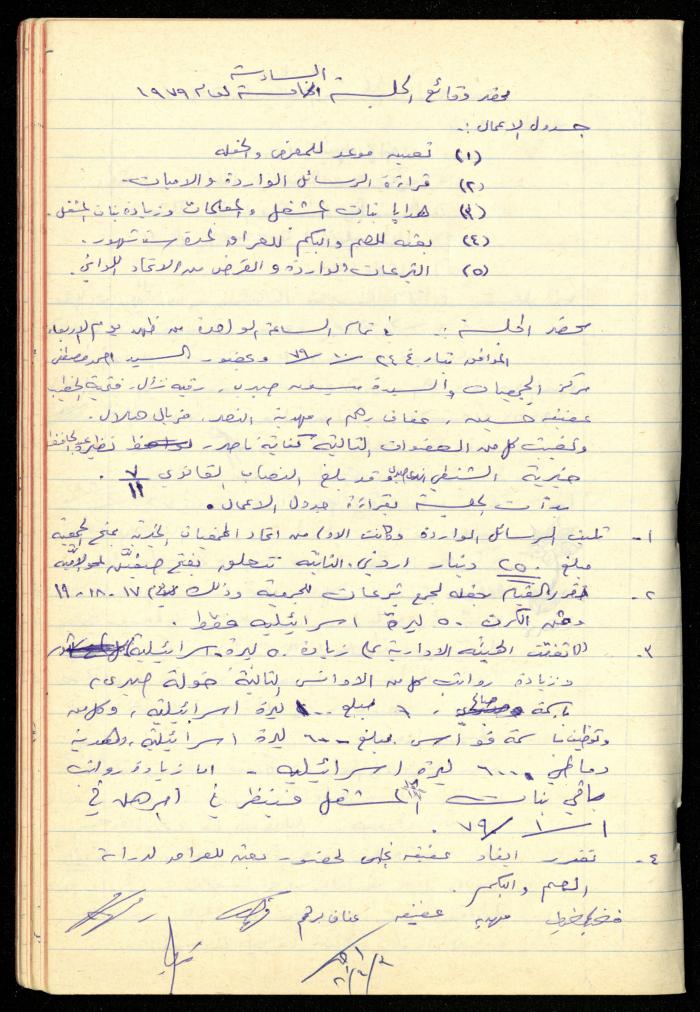 السادسة
محضر وقائع الجلسة الخامسة لعام ١٩٧٩
جدول الاعمال :.
(١) تعيين موعد للمعرض والحفله
(٢) قراءة الرسائل الواردة والاميات
(٣) هدايا بنات المشغل والمعلمات وزيادة بنات المشغل.
(٤) بعثه للصم والبكم للعراق لمدة ستة شهور.
(٥) التبرعات الواردة و القرض من الاتحاد النسائي.
محضر الجلسة :. في تمام الساعة الواحدة من ظهر يوم الاربعاء
الموافق ٢٤ / ١٠ / ٧٩ وحضور السيد احمد مصطفى
مركز الجمعيات والسيدة ميسون صبري، رقيه نزال، فتحية الخطيب
عفيفه حسين، عفاف رهم، مهدية النصر، فريال هلال.
وتغيبت كل من العضوات التالية كفاية ناصر،
خيرية الشنطي وقد بلغ النصاب القانوني ٧ / ١١ .
بدأت الجلسة بقراءة جدول الاعمال.
١- تليت الرسائل الواردة وكانت الاولى من اتحاد الجمعيات الخيرية بمنح الجمعية
مبلغ ٢٥٠ دينار اردني، الثانيه تتعلق بفتح
٢- تقرر القيام بحفله لجمع تبرعات للجمعية وذلك ١٧-١٨-١٩
وثمن الكرت ٥٠ ليرة اسرائيليه فقط.
٣- اتفقت الهيئه الادارية على زيادة ٥٠ ليرة اسرائيلية
وزيادة رواتب كل من الاوانس التالية خولة صبري،
باسمة مبلغ ليرة اسرائيلية، وكل من
وتوظيف باسمة قواس بمبلغ ٦٠٠٠ ليرة اسرائيلية،
٦٠٠٠ ليرة اسرائيليه - اما زيادة رواتب
باقي بنات المشغل فينظر في امرهن في
١ / ١ / ٧٩.
٤- تقرر ايفاد عفيفه لحضور بعثه للعراق لدراسة
الصم والبكم.
فتحية الخطيب مهدية عفيفه عفاف رهم